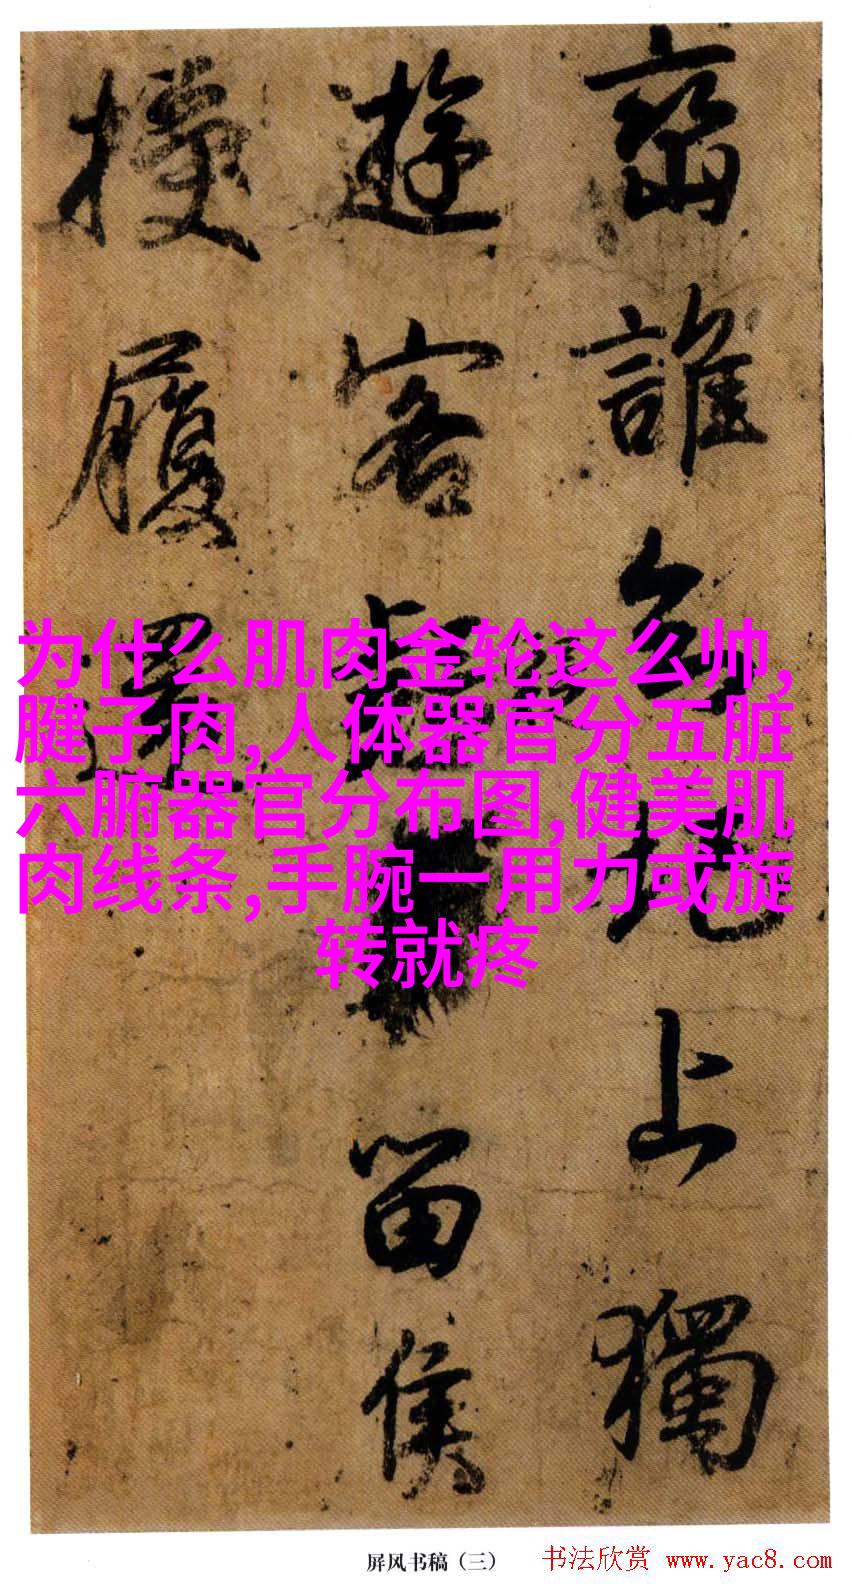 誰
上獨
遊客
留侯
履
为什么肌肉金轮这么帅,
腱子肉,人体器官分五脏
六腑器官分布图,健美肌
肉线条,手腕一用力或旋
转就疼
屏风书稿（三）
书法欣赏 www.yac8.com